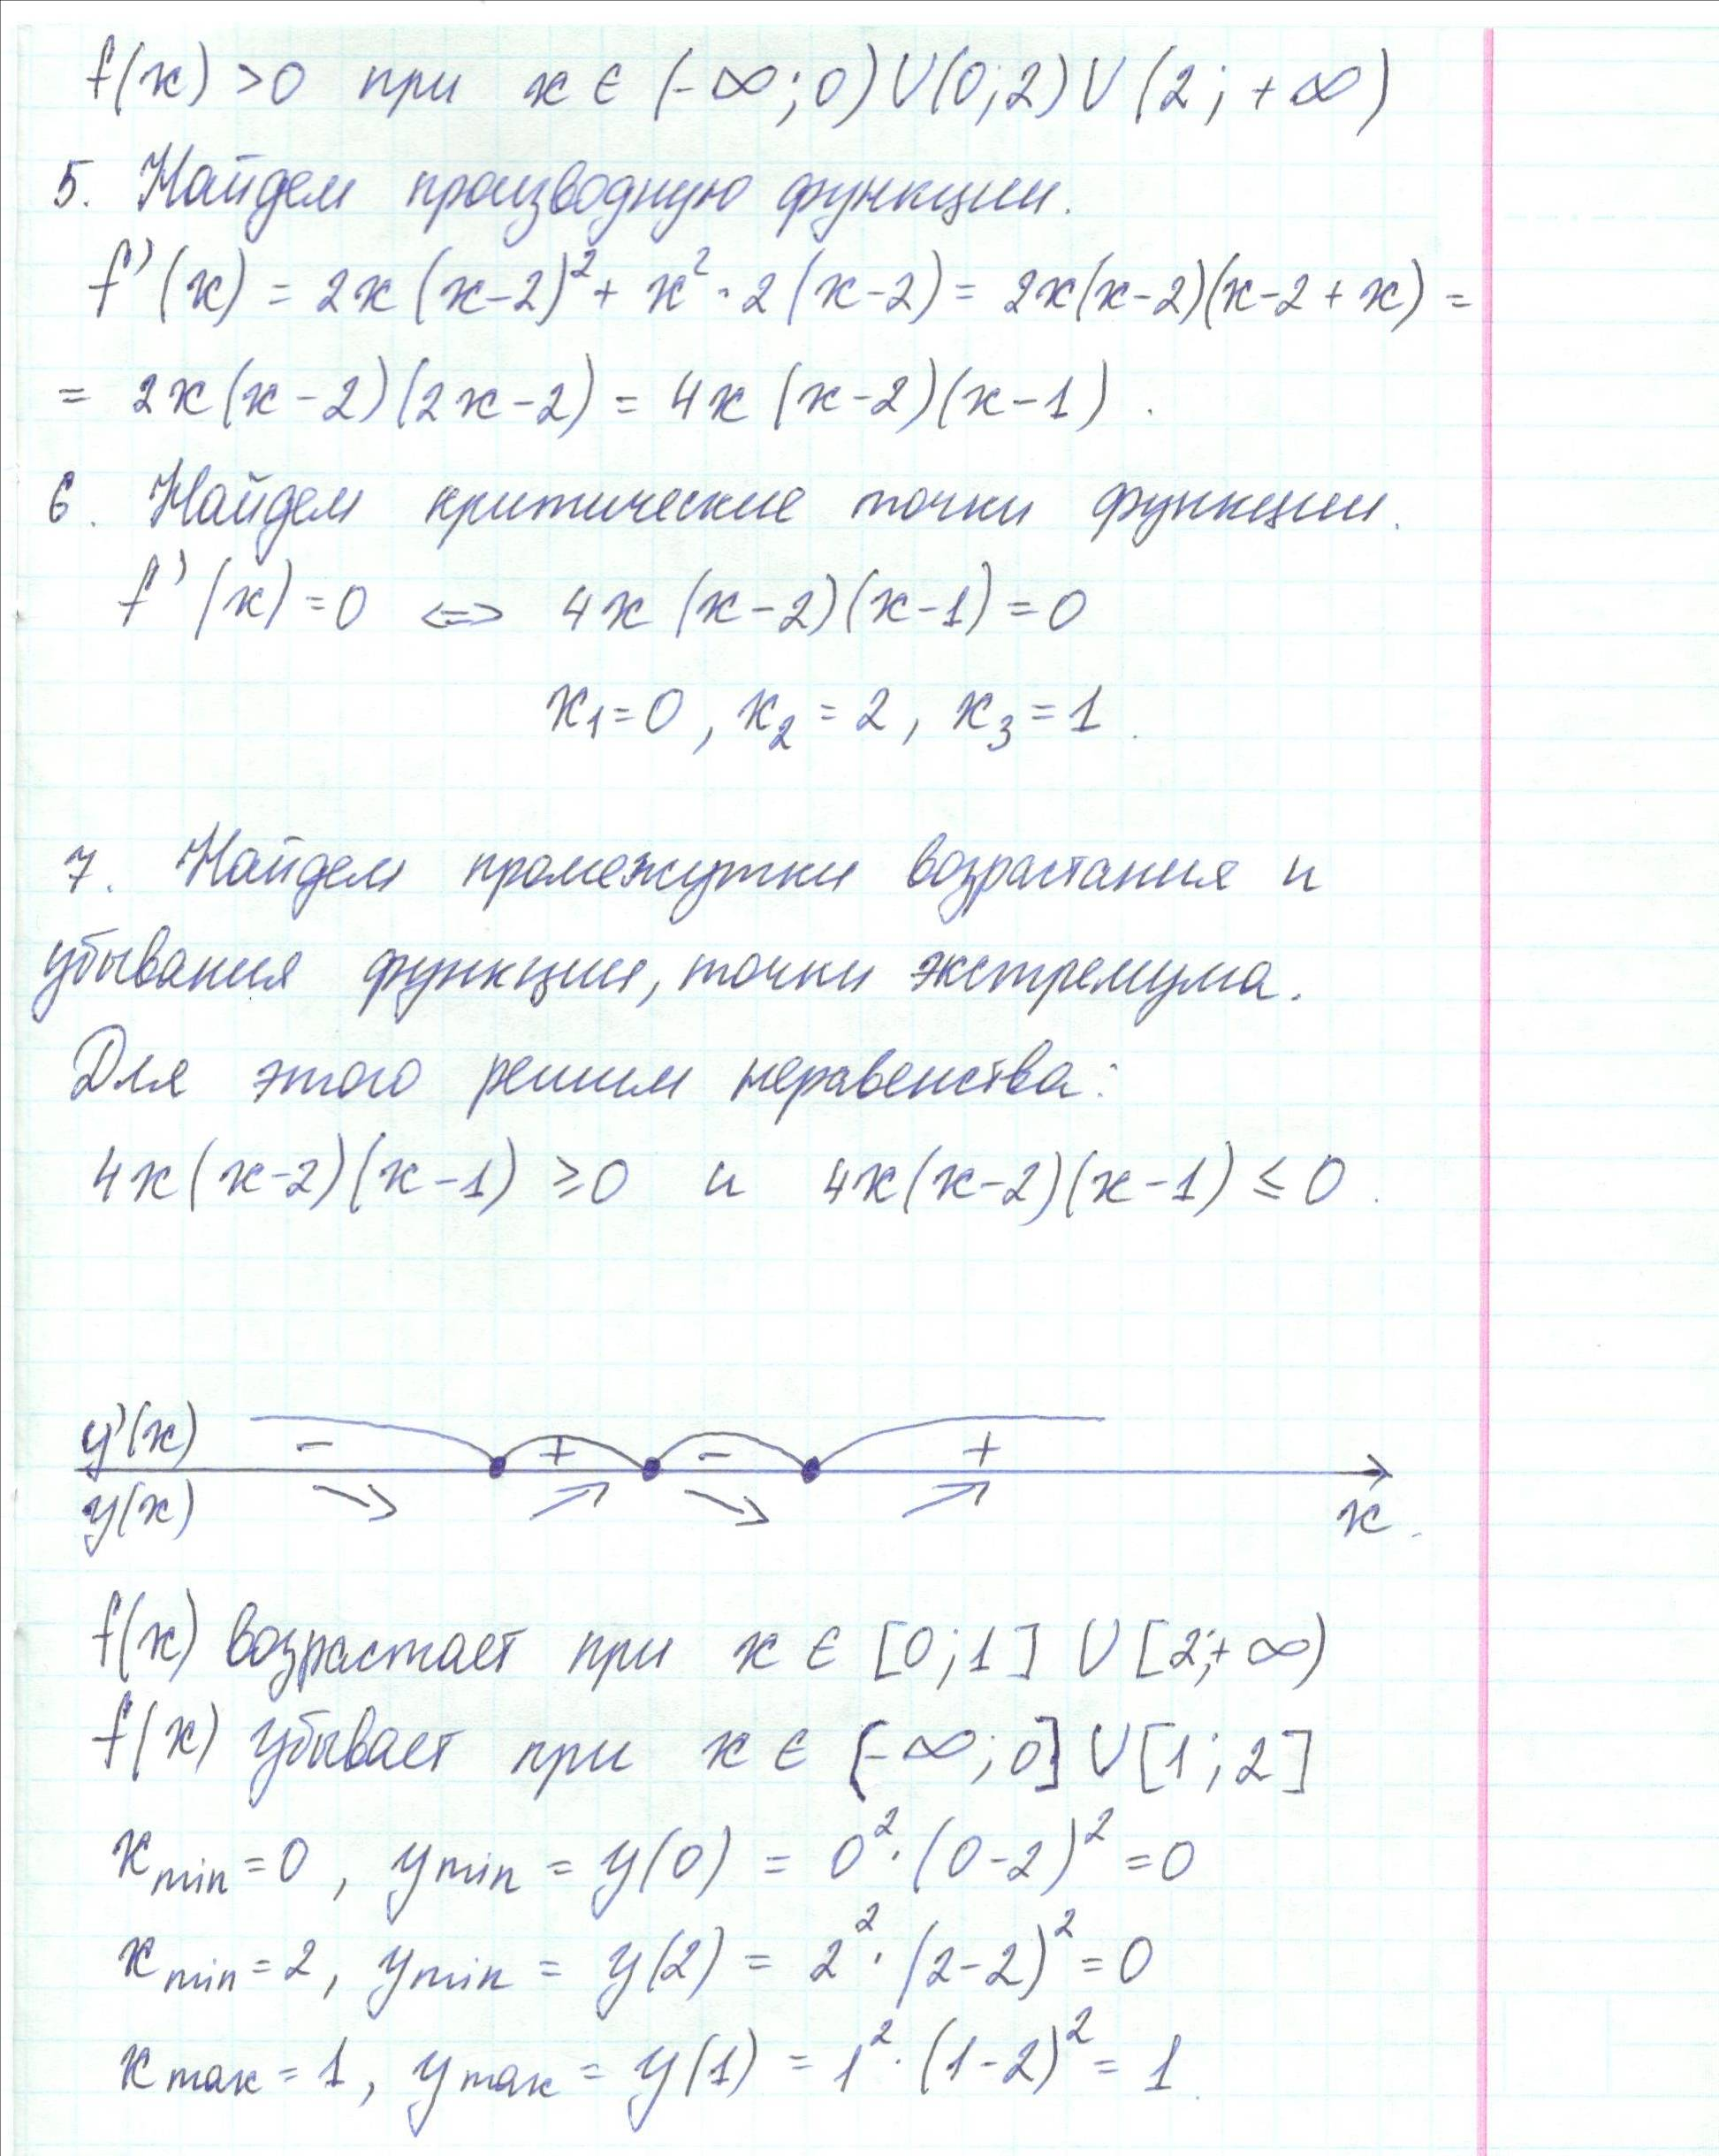 f(x) >0 при x ∈ (-∞;0)∪(0;2)∪(2;+∞)
5. Найдем производную функции.
f'(x) = 2x(x-2)²+ x²·2(x-2)= 2x(x-2)(x-2+x) =
= 2x(x-2)(2x-2)= 4x(x-2)(x-1).
6. Найдем критические точки функции.
f'(x)=0 <=> 4x(x-2)(x-1)=0
x₁=0, x₂=2, x₃=1.
7. Найдем промежутки возрастания и
убывания функции, точки экстремума.
Для этого решим неравенства:
4x(x-2)(x-1) ≥0 и 4x(x-2)(x-1)≤0.
y'(x) - + - +
y(x) x.
f(x) возрастает при x ∈ [0;1] ∪ [2;+∞)
f(x) убывает при x ∈ (-∞;0] ∪ [1;2]
xmin=0, ymin = y(0) = 0²·(0-2)²=0
xmin=2, ymin = y(2) = 2²·(2-2)²=0
xmax=1, ymax = y(1) = 1²·(1-2)²= 1.